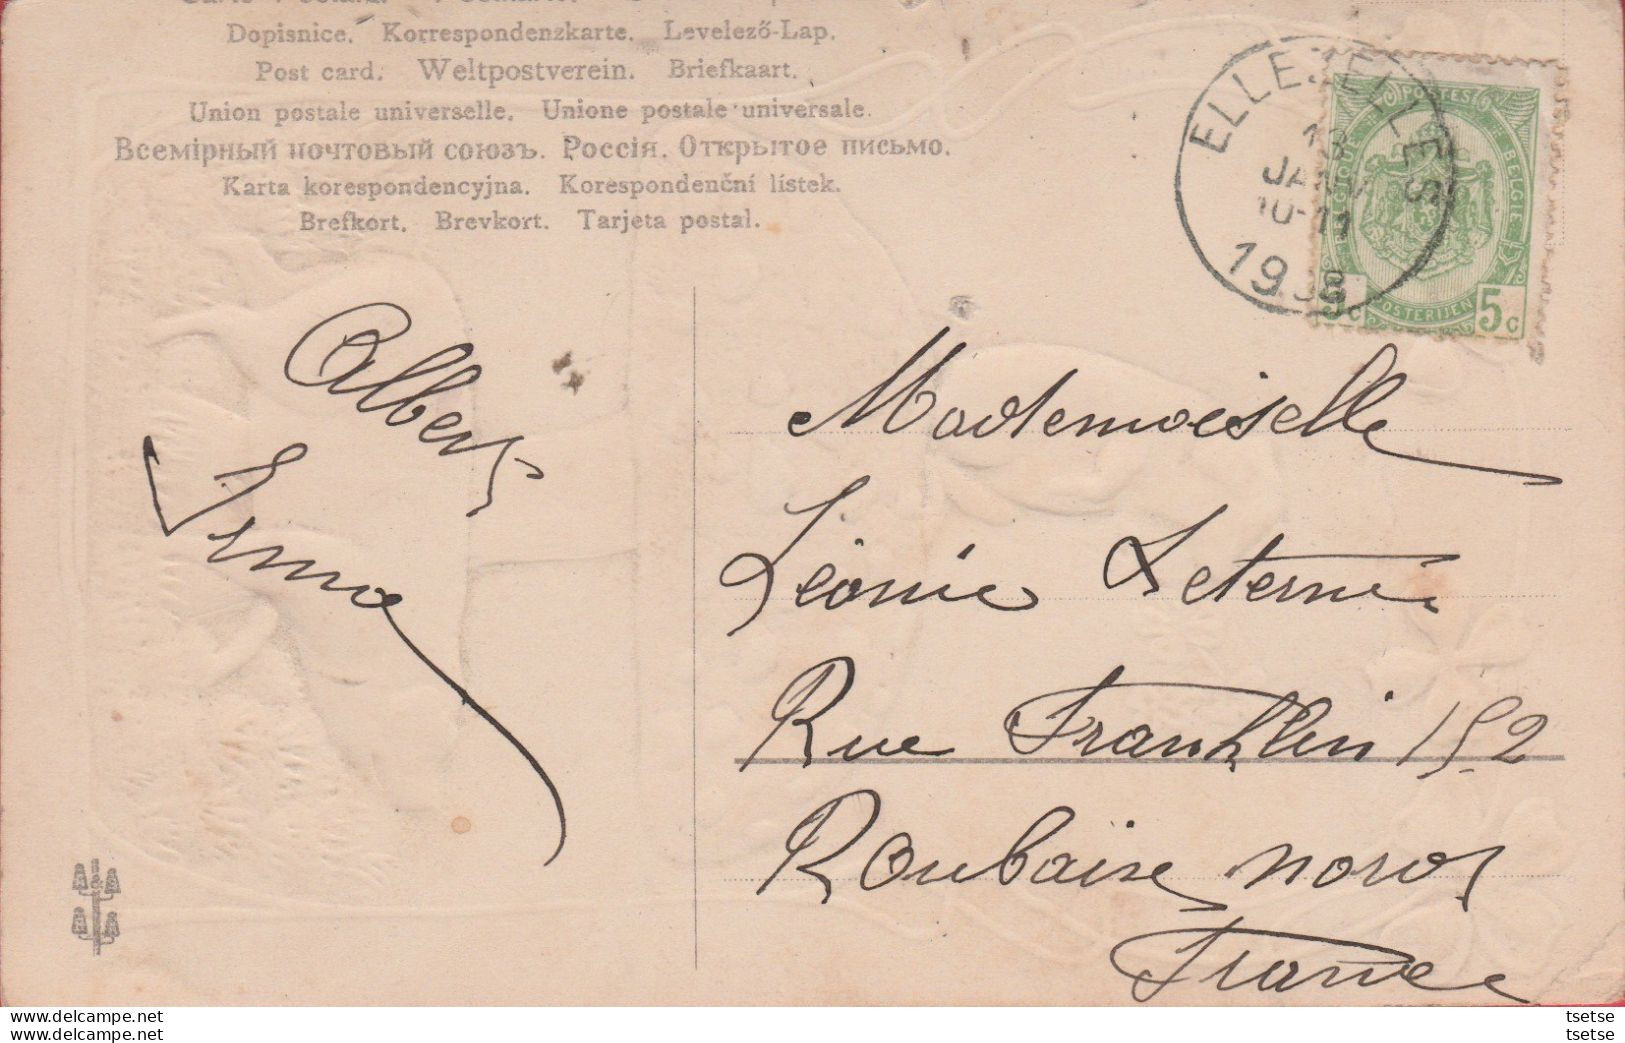 Dopisnice. Korrespondenzkarte. Levelező-Lap.
Post card. Weltpostverein. Briefkaart.
Union postale universelle. Unione postale universale.
Всемірный почтовый союзъ. Россія. Открытое письмо.
Karta korespondencyjna. Korespondenční lístek.
Brefkort. Brevkort. Tarjeta postal.
ELLEZELLES
13
JANV
10-11
1908
POSTES
BELGIQUE
BELGIE
POSTERIJEN
5c 5c
Albert
Irma
Mademoiselle
Léonie
Rue Franklin 152
Roubaise nord
France
tsetse
tsetse
www.delcampe.net
www.delcampe.net